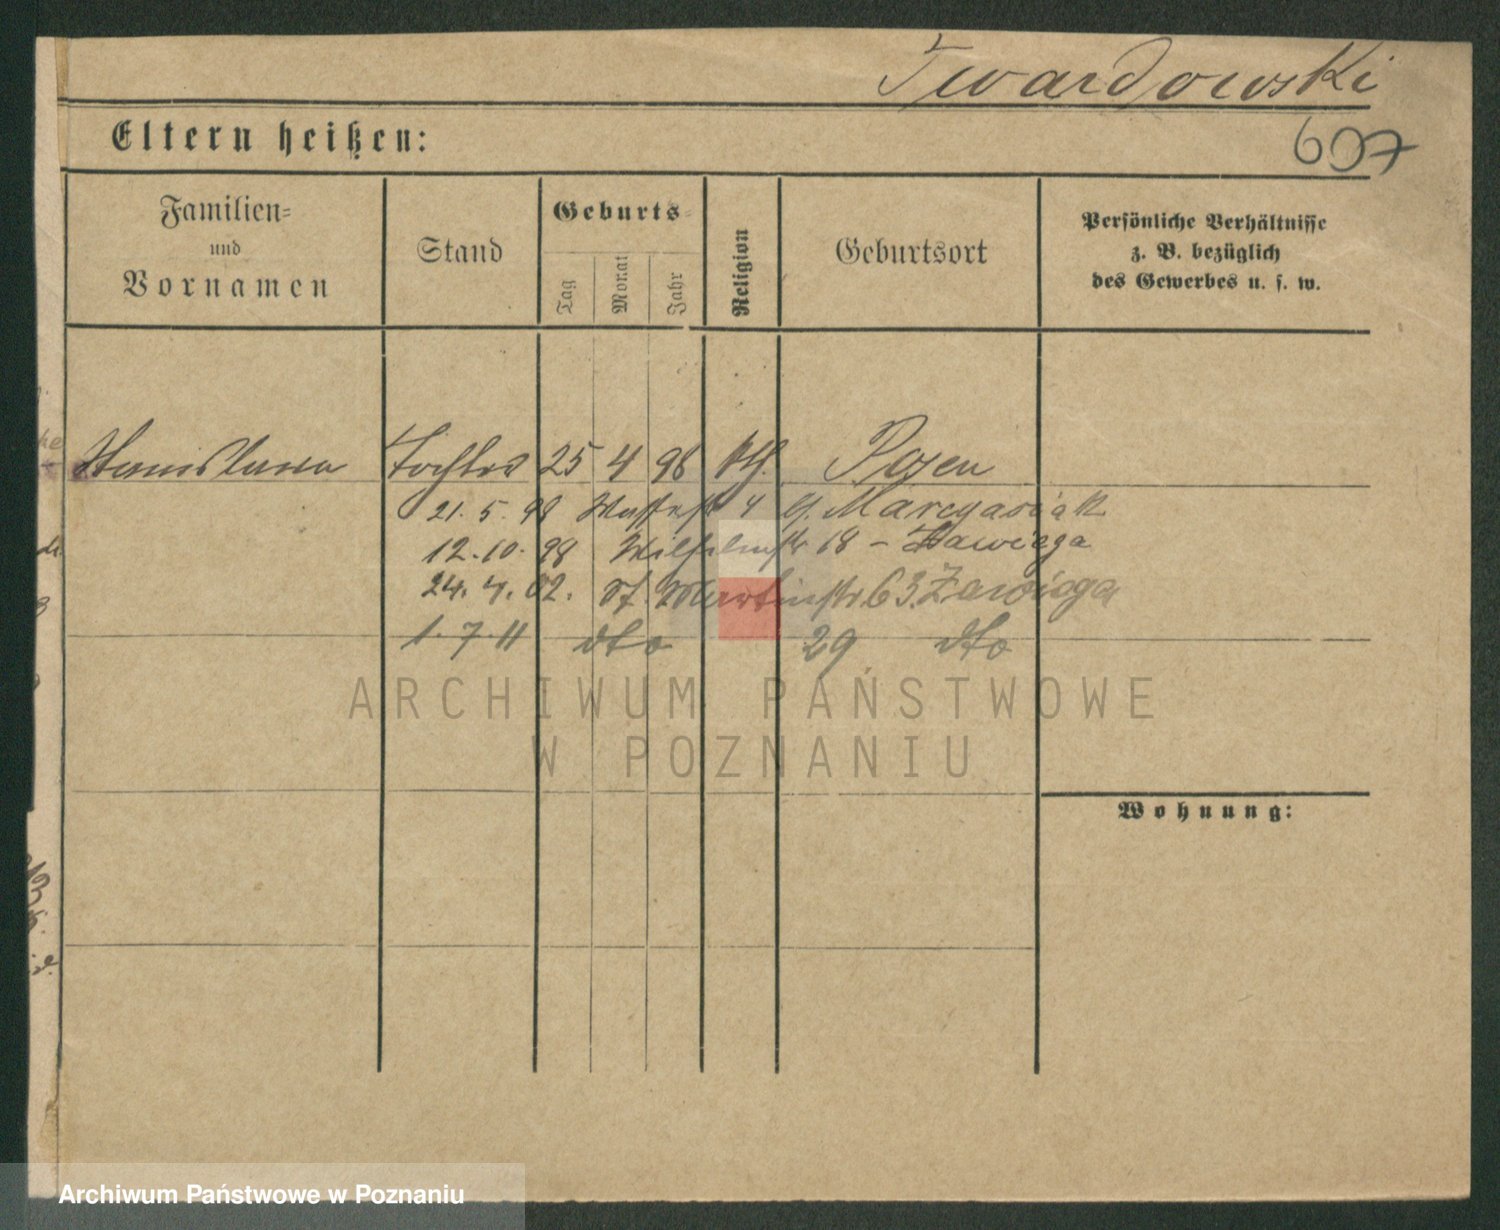 Twardowski
607
Eltern heißen:
Familien=
und
Vornamen
Stand
Geburts=
Tag
Monat
Jahr
Religion
Geburtsort
Persönliche Verhältnisse
z. B. bezüglich
des Gewerbes u. s. w.
Stanislawa Tochter 25 4 98 kth. Posen
21. 5. 98 4 Marcyasiak
12. 10. 98 Wilhelmstr 18 – Zawieja
24. 4. 02. St. Martinstr 63. Zawieja
1. 7. 11 dto 29 dto
ARCHIWUM PAŃSTWOWE
W POZNANIU
Wohnung:
Archiwum Państwowe w Poznaniu